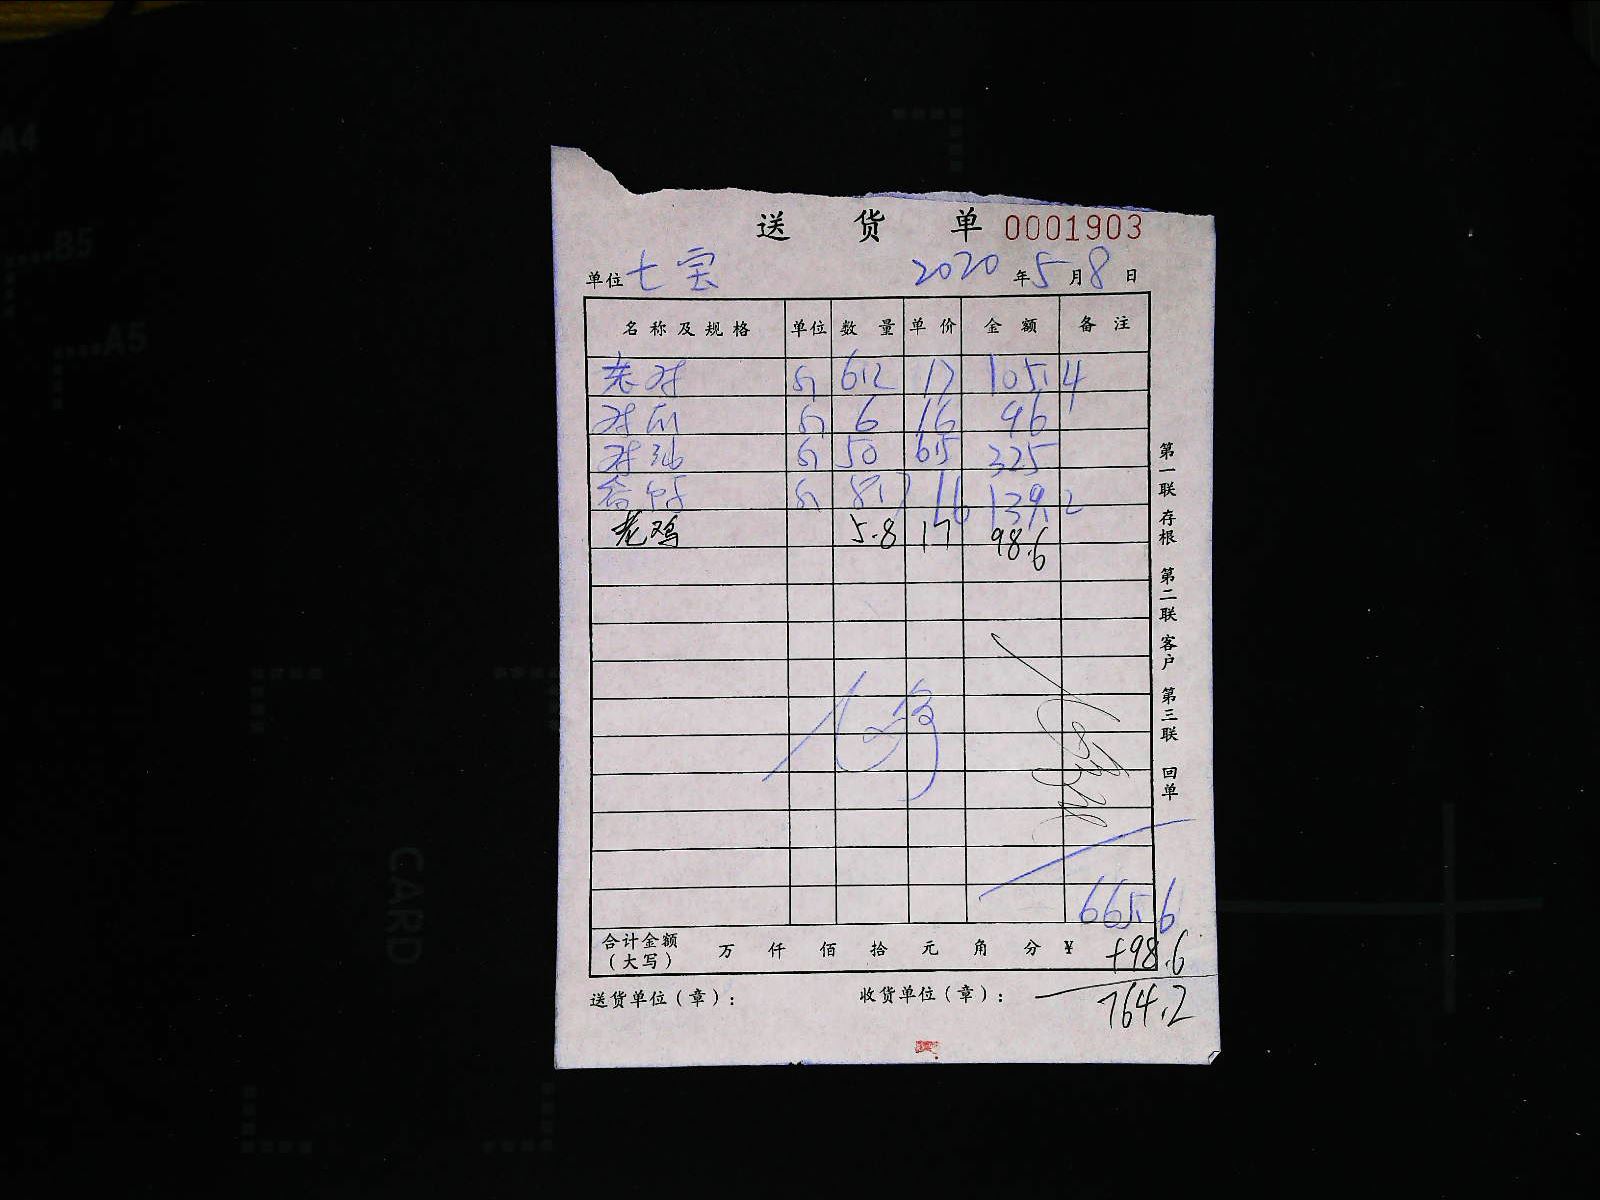 送 货 单 0001903
单位 七宝 2020 年 5 月 8 日
名称及规格 单位 数量 单价 金额 备注
斤 6.2 17 105.4
斤 6 16 96
斤 50 6.5 325
斤 8.7 16 139.2
老鸡 5.8 17 98.6
665.6
合计金额(大写) 万 仟 佰 拾 元 角 分 ¥ +98.6
764.2
送货单位(章): 收货单位(章):
第一联 存根 第二联 客户 第三联 回单
A4
B5
A5
CARD